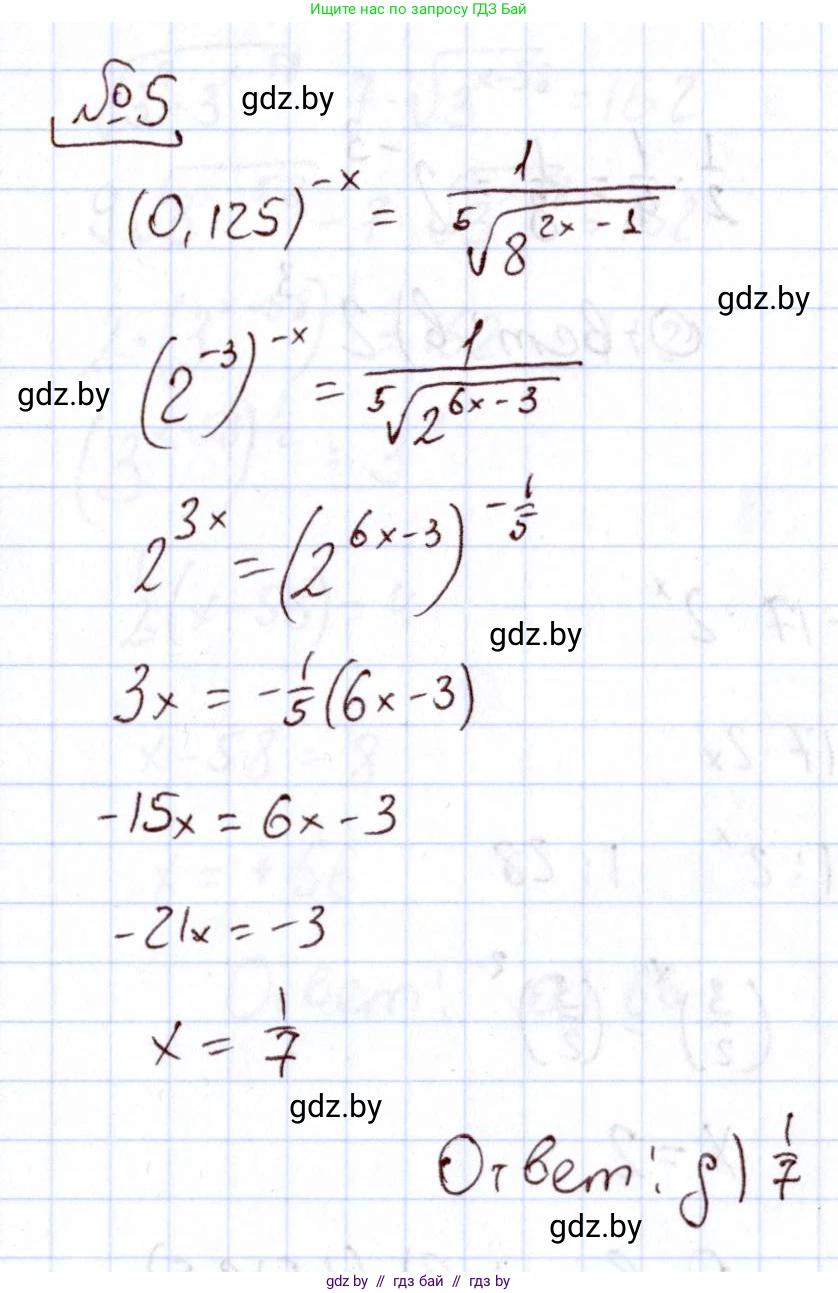 Ищите нас по запросу ГДЗ Бай
№5 gdz.by
(0,125)^{-x} = \frac{1}{\sqrt[5]{8^{2x-1}}}
gdz.by
(2^{-3})^{-x} = \frac{1}{\sqrt[5]{2^{6x-3}}}
gdz.by
2^{3x} = (2^{6x-3})^{-\frac{1}{5}}
gdz.by
3x = -\frac{1}{5}(6x-3)
-15x = 6x-3
-21x = -3
x = \frac{1}{7}
gdz.by
Ответ: д) \frac{1}{7}
gdz.by
gdz.by // гдз бай // гдз by